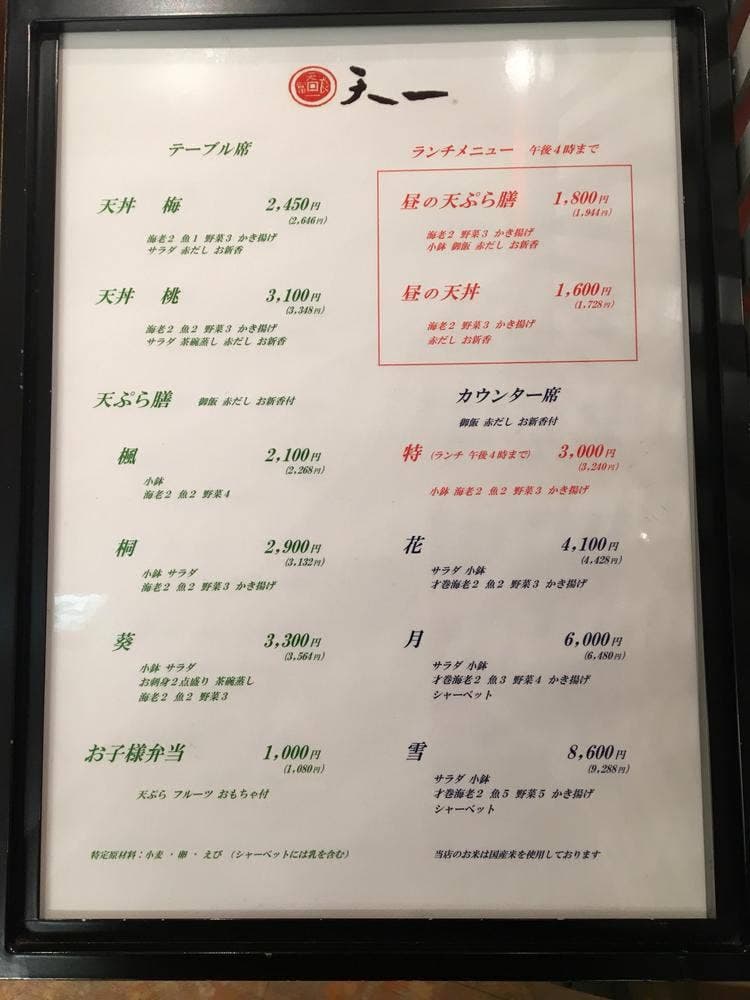 天一
テーブル席
天丼 梅 2,450円
(2,646円)
海老2 魚1 野菜3 かき揚げ
サラダ 赤だし お新香
天丼 桃 3,100円
(3,348円)
海老2 魚2 野菜3 かき揚げ
サラダ 茶碗蒸し 赤だし お新香
天ぷら膳 御飯 赤だし お新香付
楓 2,100円
(2,268円)
小鉢
海老2 魚2 野菜4
桐 2,900円
(3,132円)
小鉢 サラダ
海老2 魚2 野菜3 かき揚げ
葵 3,300円
(3,564円)
小鉢 サラダ
お刺身2点盛り 茶碗蒸し
海老2 魚2 野菜3
お子様弁当 1,000円
(1,080円)
天ぷら フルーツ おもちゃ付
特定原材料:小麦・卵・えび (シャーベットには乳を含む)
ランチメニュー 午後4時まで
昼の天ぷら膳 1,800円
(1,944円)
海老2 野菜3 かき揚げ
小鉢 御飯 赤だし お新香
昼の天丼 1,600円
(1,728円)
海老2 野菜3 かき揚げ
赤だし お新香
カウンター席
御飯 赤だし お新香付
特 (ランチ 午後4時まで) 3,000円
(3,240円)
小鉢 海老2 魚2 野菜3 かき揚げ
花 4,100円
(4,428円)
サラダ 小鉢
才巻海老2 魚2 野菜3 かき揚げ
月 6,000円
(6,480円)
サラダ 小鉢
才巻海老2 魚3 野菜4 かき揚げ
シャーベット
雪 8,600円
(9,288円)
サラダ 小鉢
才巻海老2 魚5 野菜5 かき揚げ
シャーベット
当店のお米は国産米を使用しております